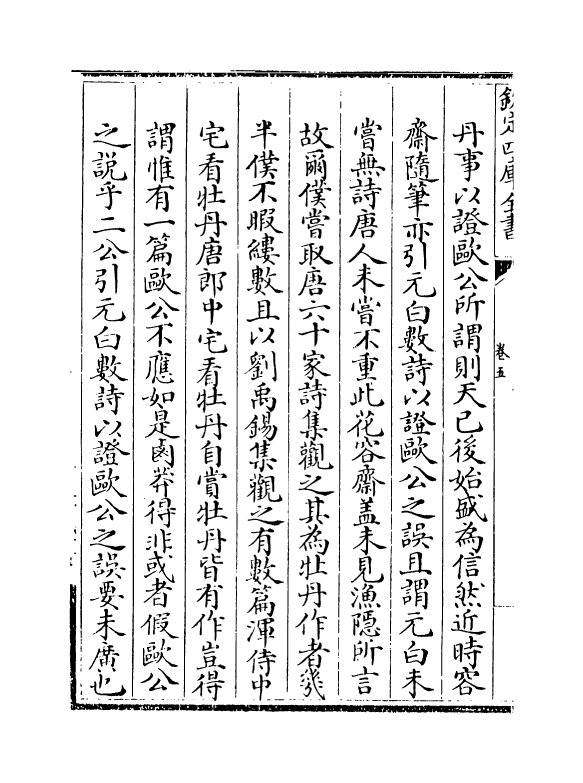 欽定四庫全書
卷五
丹事以證歐公所謂則天已後始盛為信然近時容
齋隨筆亦引元白數詩以證歐公之誤且謂元白未
嘗無詩唐人未嘗不重此花容齋盖未見漁隱所言
故爾僕嘗取唐六十家詩集觀之其為牡丹作者幾
半僕不暇縷數且以劉禹錫集觀之有數篇渾侍中
宅看牡丹唐郎中宅看牡丹自賞牡丹皆有作豈得
謂惟有一篇歐公不應如是鹵莽得非或者假歐公
之説乎二公引元白數詩以證歐公之誤要未廣也